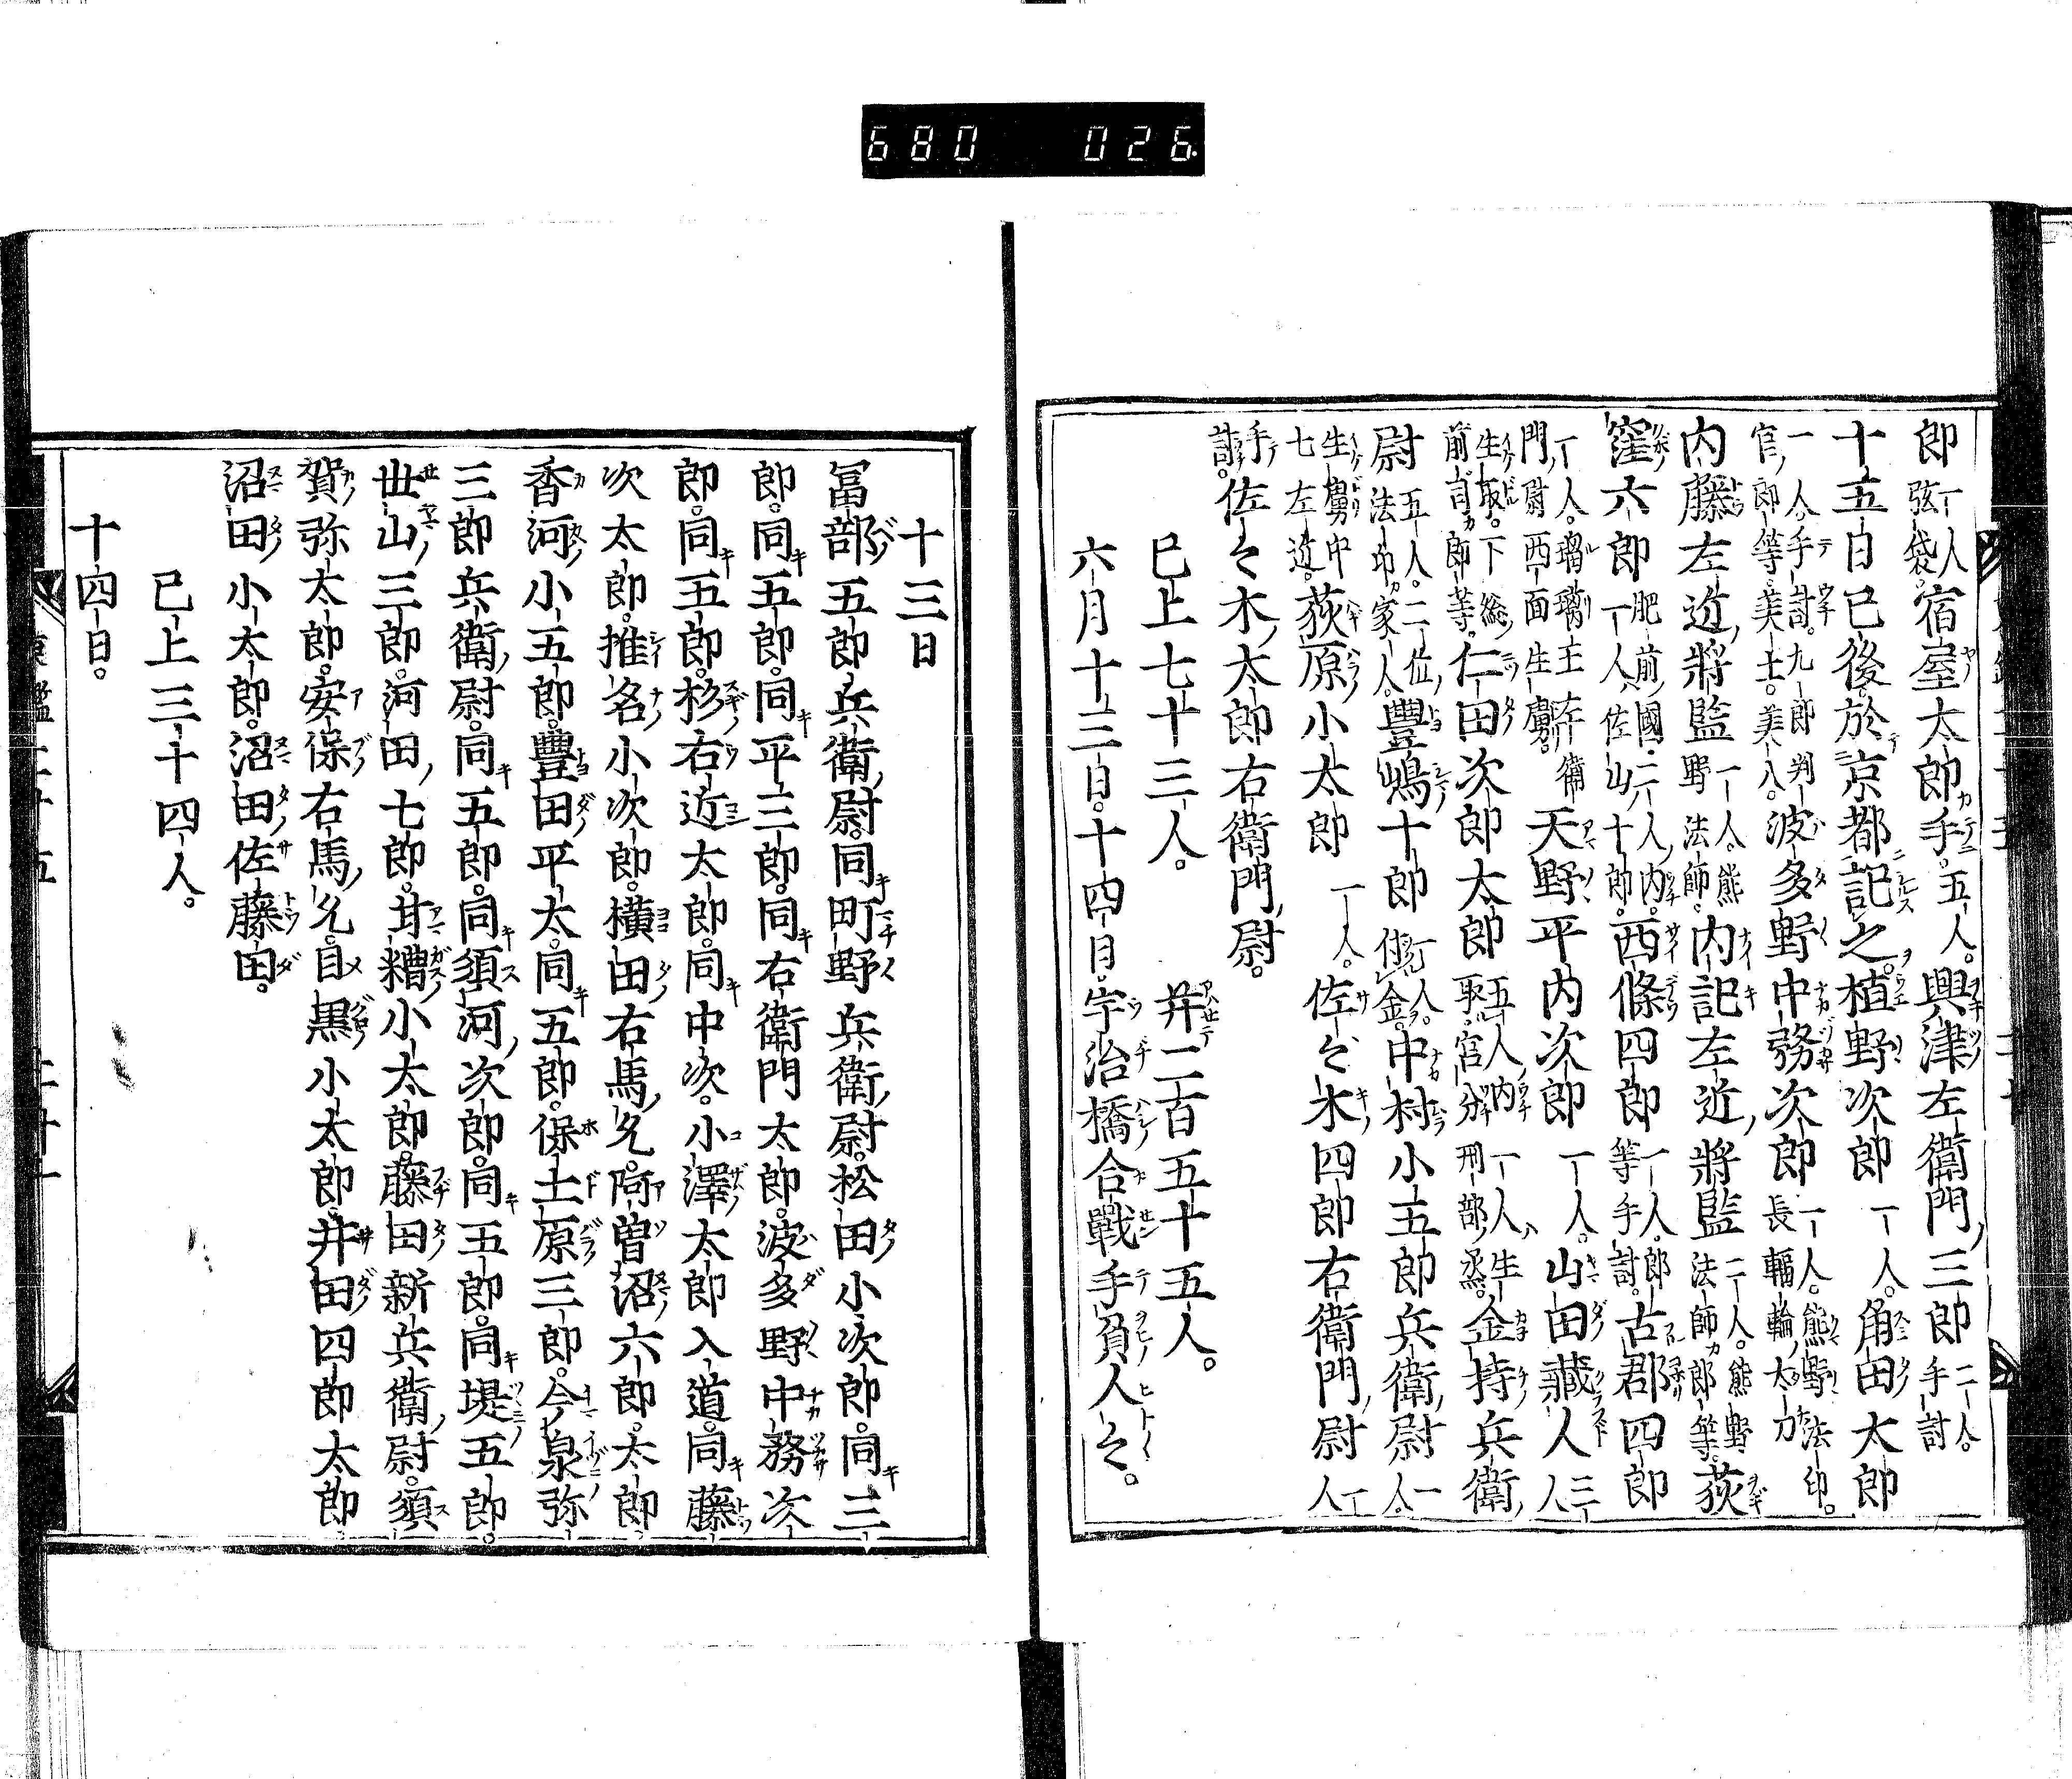 680 026
郎一人弦袋。宿屋太郎手。五人。興津左衛門三郎二人。手討
十五日已後。於京都記之。植野次郎一人。角田太郎
一人。手討。九郎判官郎等。美士。美八。波多野中務次郎一人。熊野法印。長輻輪太刀
内藤左近將監一人。熊野法師。内記左近將監二人。熊野法師郎等。荻
窪六郎肥前國二人内。一人佐山十郎。西條四郎一人。郎等手討。古郡四郎
一人。瑠璃王左衛門尉西面生虜。天野平内次郎一人。山田藏人三人
生取。下総前司郎等。仁田次郎太郎五人内取官分一人生刑部丞。金持兵衛
尉五人。二位法印家人。豐嶋十郎 中村小五郎兵衛尉一人。
生虜中七左近。荻原小太郎一人。佐々木四郎右衛門尉一人
手討。佐々木太郎右衛門尉。
已上七十三人。 并二百五十五人。
六月十三日。十四日。宇治橋合戰手負人々。
十三日
冨部五郎兵衛尉。同町野兵衛尉。松田小次郎。同三
郎。同五郎。同平三郎。同右衛門太郎。波多野中務次
郎。同五郎。杉右近太郎。同中次。小澤太郎入道。同藤
次太郎。推名小次郎。横田右馬允。阿曽沼六郎。太郎
香河小五郎。豐田平太。同五郎。保土原三郎。今泉弥
三郎兵衛尉。同五郎。同須河次郎。同五郎。同堤五郎。
丗山三郎。河田七郎。甘糟小太郎。藤田新兵衛尉。須
賀弥太郎。安保右馬允。目黒小太郎。井田四郎太郎
沼田小太郎。沼田佐藤田。
已上三十四人。
十四日。